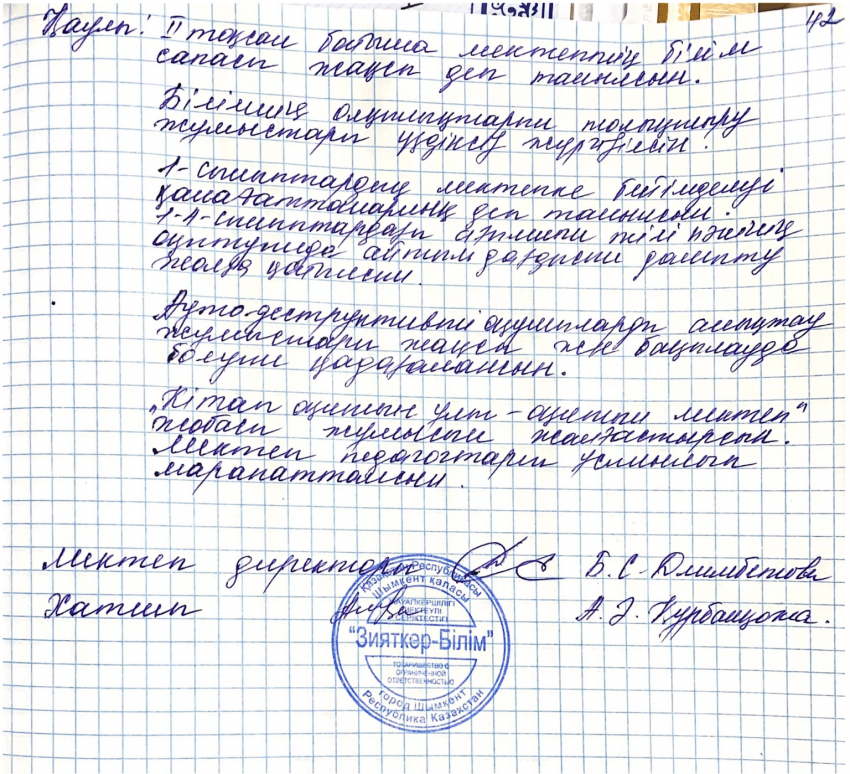 42
Қаулы: II тоқсан бойынша мектептің білім
сапасы жақсы деп танылсын.
Білімнің олқылықтарын толықтыру
жұмыстары үздіксіз жүргізілсін.
1-сыныптардың мектепке бейімделуі
қанағаттанарлық деп танылсын.
1-4-сыныптардағы ағылшын тілі пәнінің
оқытуында айтылым дағдысын дамыту
жолға қойылсын.
Ауто-деструктивті оқушыларды анықтау
жұмыстары жақсы және бақылауда
болуы қадағалансын.
„Кітап оқитын ұлт - оқитын мектеп"
жобасы жұмысын жалғастырсын.
Мектеп педагогтары ұсынылып
марапатталсын.
Мектеп директоры Б.С. Длимбетова
Хатшы А.Ә. Құрбанқожа.
Қазақстан Республикасы
Шымкент қаласы
ЖАУАПКЕРШІЛІГІ
ШЕКТЕУЛІ
СЕРІКТЕСТІГІ
"Зияткер-Білім"
ТОВАРИЩЕСТВО С
ОГРАНИЧЕННОЙ
ОТВЕТСТВЕННОСТЬЮ
город Шымкент
Республика Казахстан